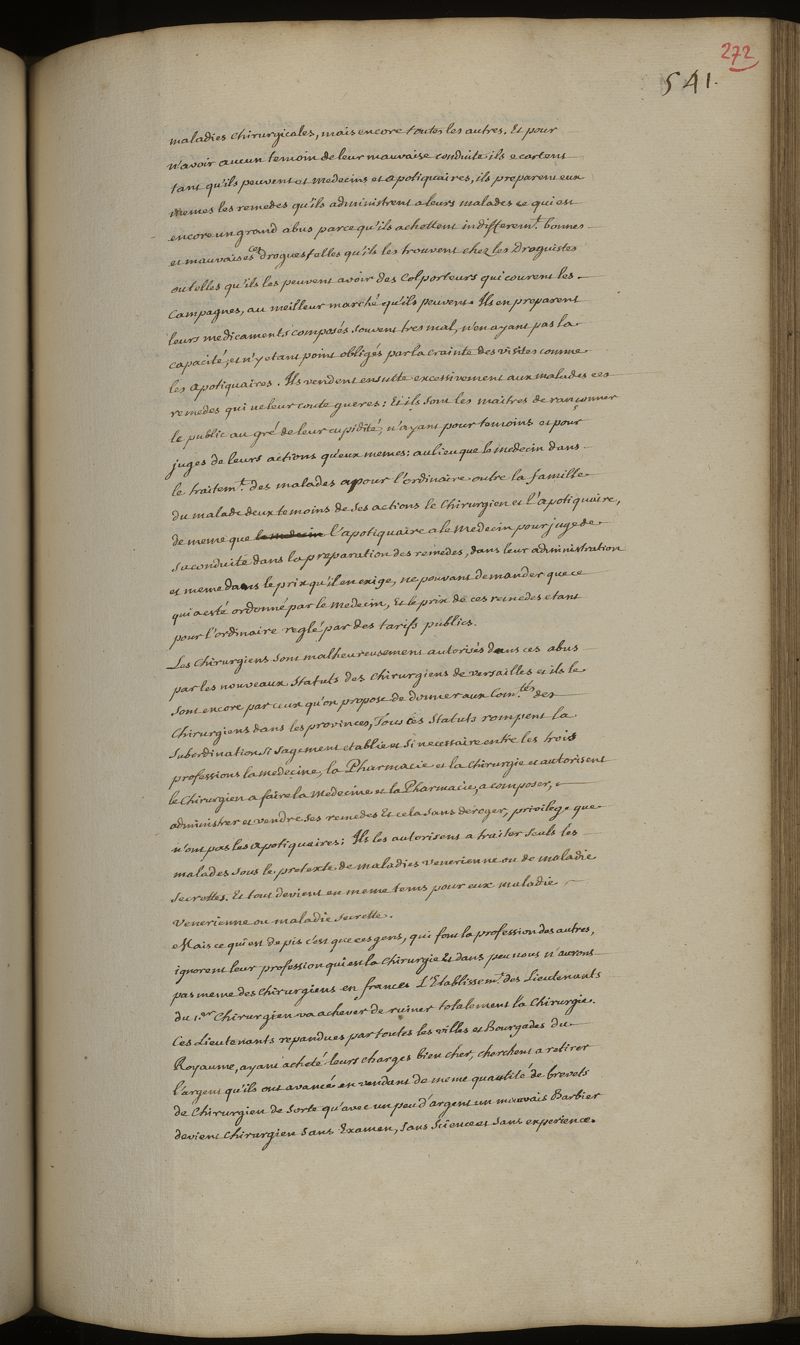 272
541.
maladies chirurgicales, mais encore toutes les autres. Et pour
n'avoir aucun temoin de leur mauvaise conduite ils ecartent
tant qu'ils peuvent et medecins et apotiquaires, ils preparent eux
memes les remedes qu'ils administrent a leurs malades ce qui est
encore un grand abus parce qu'ils achettent indifferem.t bonnes
et mauvaises ces drogues telles qu'ils les trouvent chez les Droguistes
ou telles qu'ils les peuvent avoir des Colporteurs qui courent les
Campagnes, au meilleur marché qu'ils peuvent. Ils en preparent
leurs medicaments composés souvent tres mal, n'en ayant pas la
capacité, et n'y etant point obligés par la crainte des visites comme
les Apotiquaires. Ils vendent ensuite excessivement aux malades ces
remedes qui ne leur coute gueres: Et ils sont les maitres de rançonner
le public au gré de leur cupidité, n'ayant pour temoins et pour
juges de leurs actions qu'eux memes: au lieu que le medecin dans
le traitem.t des malades a pour l'ordinaire outre la famille
du malade deux temoins de ses actions le Chirurgien et l'apotiquaire,
de meme que le medecin l'apotiquaire a le Medecin pour juge de
sa conduite dans la preparation des remedes, dans leur administration
et meme dans le prix qu'il en exige, ne pouvant demander que ce
qui a esté ordonné par le medecin, Et le prix de ces remedes etant
pour l'ordinaire reglé par des tarifs publics.
Les Chirurgiens sont malheureusement autorisés dans ces abus
par les nouveaux Statuts des Chirurgiens de versailles et ils le
sont encore par ceux qu'on propose de donner aux Com.tés des
Chirurgiens dans les provinces, Tous ces Statuts rompent la
Subordination si sagement etablie et si necessaire entre les trois
professions la medecine, la Pharmacie et la Chirurgie et autorisent
le Chirurgien a faire la Medecine et la Pharmacie, a composer,
administrer et vendre ses remedes Et cela sans deroger, privilege que
n'ont pas les Apotiquaires: Ils les autorisent a traiter seuls les
malades sous le pretexte de maladies venerienne ou de maladie
secrettes. Et tout devient en meme tems pour eux maladie
Venerienne ou maladie secrette.
Mais ce qui est de pis c'est que ces gens, qui font la profession des autres,
ignorent leur profession qui est la Chirurgie Et dans peu nous n'aurons
pas meme des Chirurgiens en france. L'Etablissem.t des Lieutenants
du 1.er Chirurgien va achever de ruiner totalement la Chirurgie.
Ces Lieutenants repandues par toutes les villes et Bourgades du
Royaume, ayant acheté leurs charges bien cher, cherchent a retirer
l'argent qu'ils ont avancé en vendant de meme quantité de brevets
de Chirurgien de sorte qu'avec un peu d'argent un mauvais Barbier
devient Chirurgien Sans Examen, Sans Science et Sans experience.